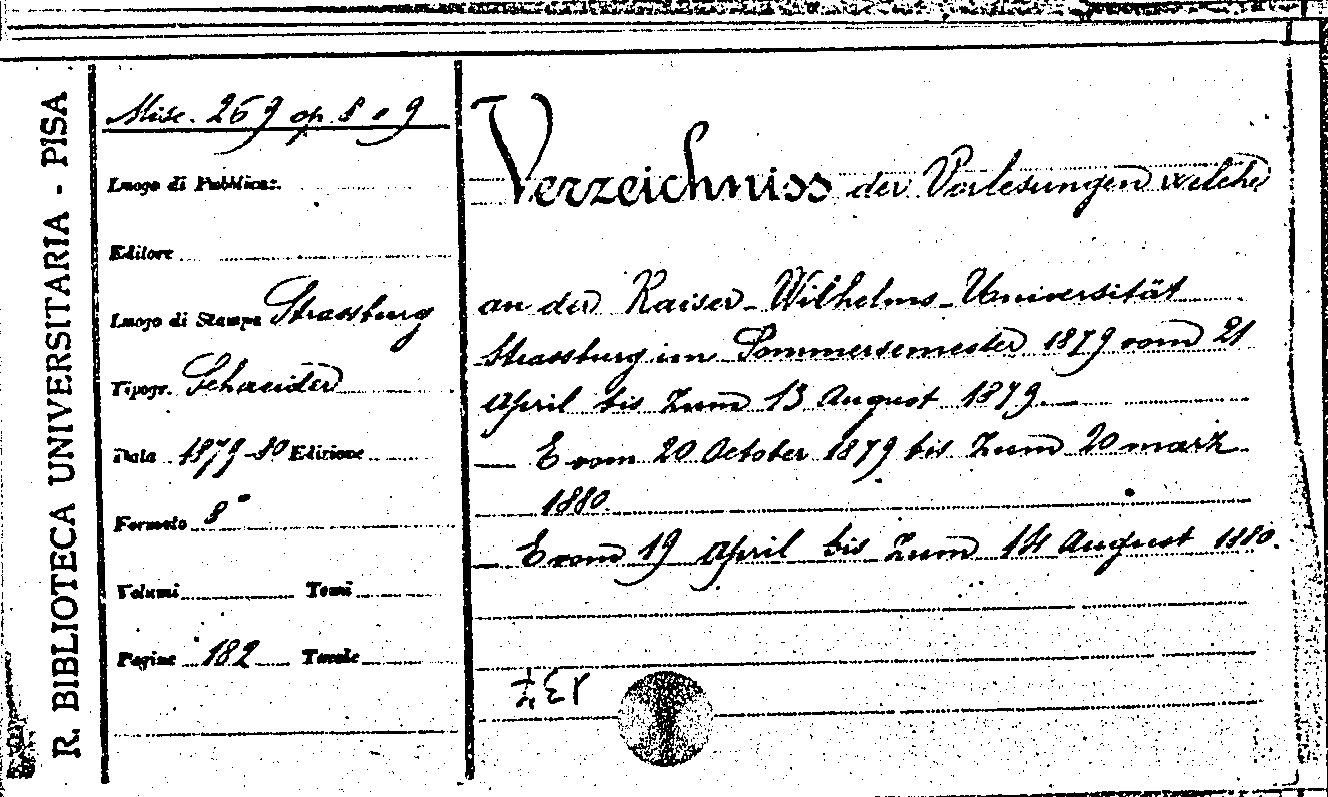 R. BIBLIOTECA UNIVERSITARIA - PISA
Misc. 269 op. 8 e 9
Luogo di Pubblicaz.
Editore
Luogo di Stampa Strassburg
Tipogr. Schneider
Data 1879-80 Edizione
Formato 8°
Volumi Tomi
Pagine 182 Tavole
Verzeichniss der Vorlesungen welche
an der Kaiser-Wilhelms-Universität
Strassburg im Sommersemester 1879 vom 21
April bis zum 13 August 1879.
— E vom 20 October 1879 bis zum 20 märz
1880.
— E vom 19 April bis zum 14 August 1880.